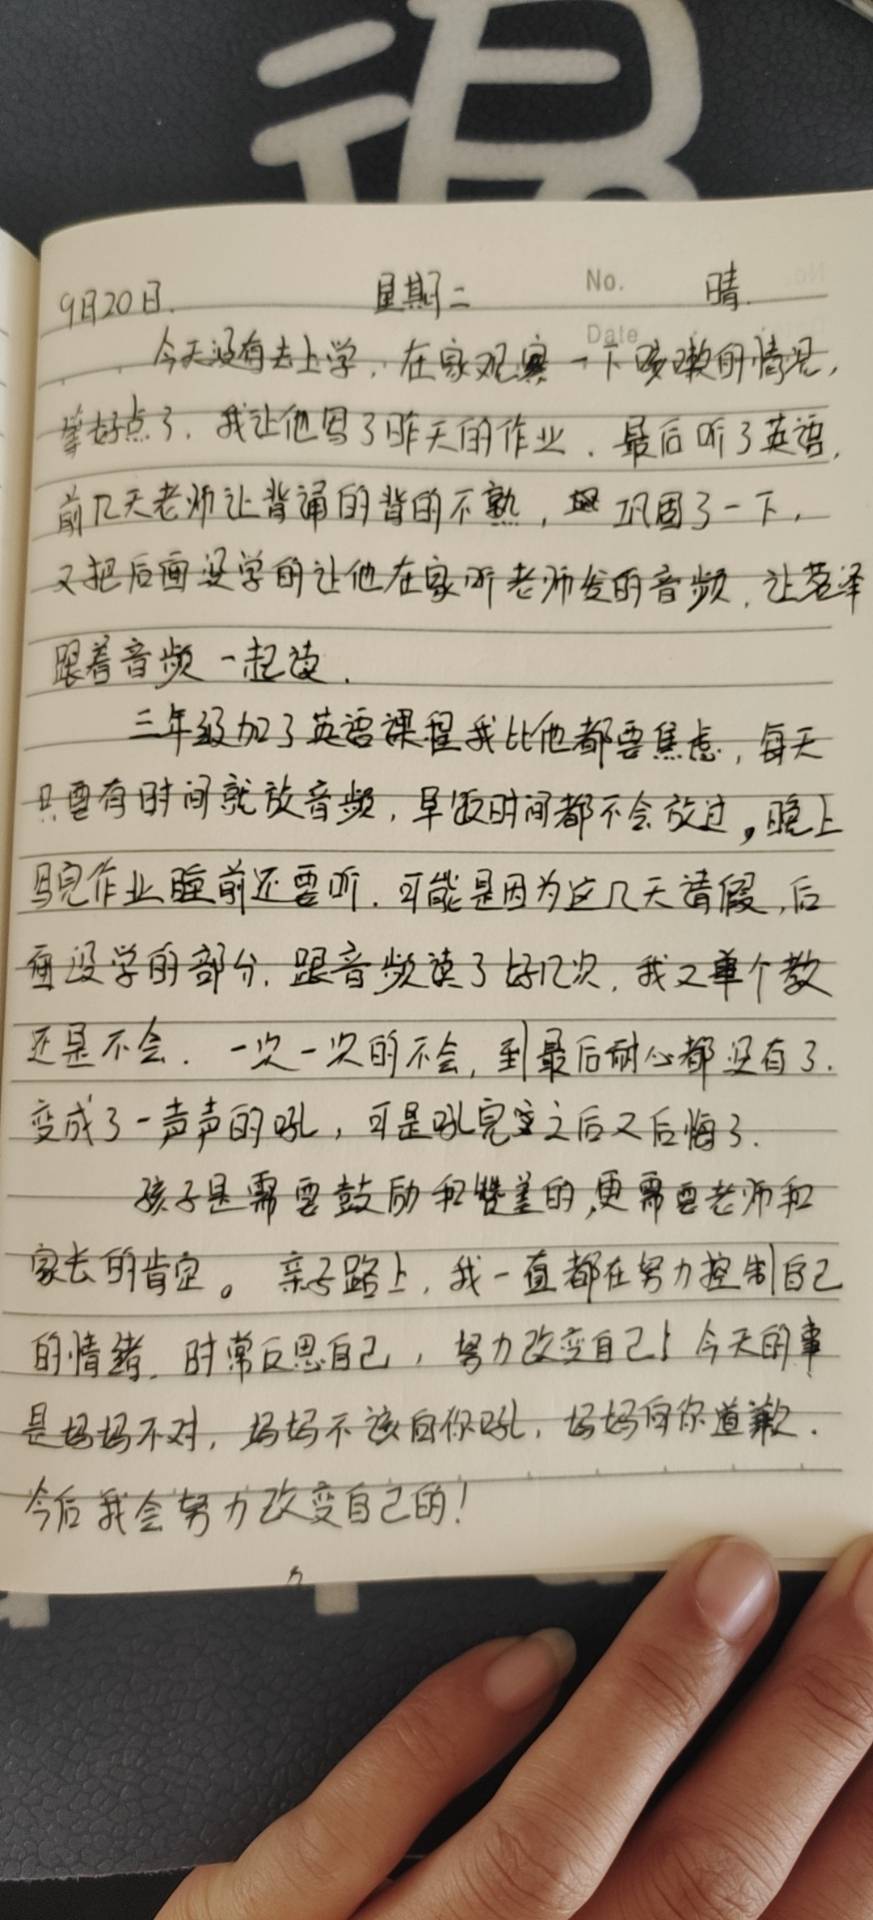 No.
Date
9月20日. 星期二 晴.
今天没有去上学,在家观察一下咳嗽的情况,
好点了.我让他写了昨天的作业.最后听了英语,
前几天老师让背诵的背的不熟,巩固了一下,
又把后面没学的让他在家听老师发的音频,让茗泽
跟着音频一起读.
三年级加了英语课程我比他都要焦虑,每天
只要有时间就放音频,早饭时间都不会放过,晚上
写完作业睡前还要听.可能是因为这几天请假,后
面没学的部分,跟音频读了好几次,我又单个教
还是不会.一次一次的不会,到最后耐心都没有了.
变成了一声声的吼,可是吼完之后又后悔了.
孩子是需要鼓励和赞美的,更需要老师和
家长的肯定。亲子路上,我一直都在努力控制自己
的情绪.时常反思自己,努力改变自己!今天的事
是妈妈不对,妈妈不该向你吼,妈妈向你道歉.
今后我会努力改变自己的!